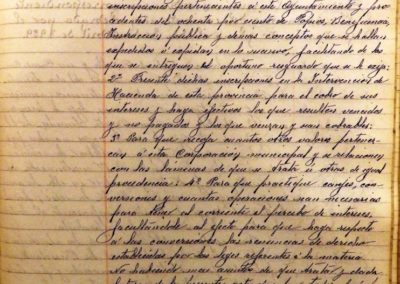 inscripciones pertenecientes á este Ayuntamiento y pro-
cedentes del ochenta por ciento de Propios, Beneficencia,
Instrucción pública y demás conceptos que se hallen
expedidas ó expidan en lo sucesivo, facilitando de los
que se entreguen el oportuno resguardo que se le exija:
2º Presente dichas inscripciones en la Intervención de
Hacienda de esta provincia para el cobro de sus
intereses y haga efectivos los que resulten vencidos
y no pagados y los que venzan y sean cobrables:
3º Para que recoja cuantos otros valores pertenez-
can á esta Corporación municipal y se relacionen
con las láminas de que se trata ú otras de igual
procedencia: 4º Para que practique canges, con-
versiones y cuantas operaciones sean necesarias
para tener al corriente el percibo de intereses,
facultándole al efecto para que haga respecto
á las conversiones las renuncias de derecho
establecidas por las leyes referentes á la materia.
No habiendo mas asuntos de que tratar y